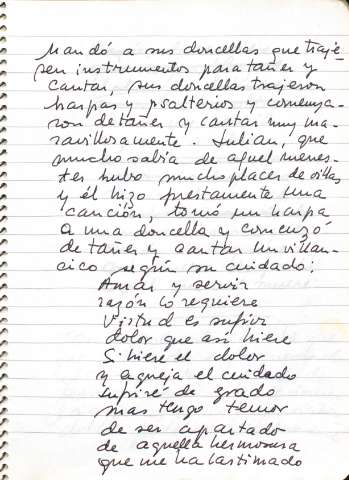 Mandó a sus doncellas que traje-
sen instrumentos para tañer y
cantar, sus doncellas trajeron
harpas y psalterios y comenza-
ron de tañer y cantar muy ma-
ravillosamente. Julian, que
mucho sabia de aquel menes-
ter hubo mucho placer de oillas
y él hizo prestamente una
canción, tomó un harpa
a una doncella y comenzó
de tañer y cantar un villan-
cico según su cuidado:
Amar y servir
razón lo requiere
Virtud es sufrir
dolor que asi hiere
Si hiere el dolor
y aqueja el cuidado
sufriré de grado
mas tengo temor
de ser apartado
de aquella hermosura
que me ha lastimado